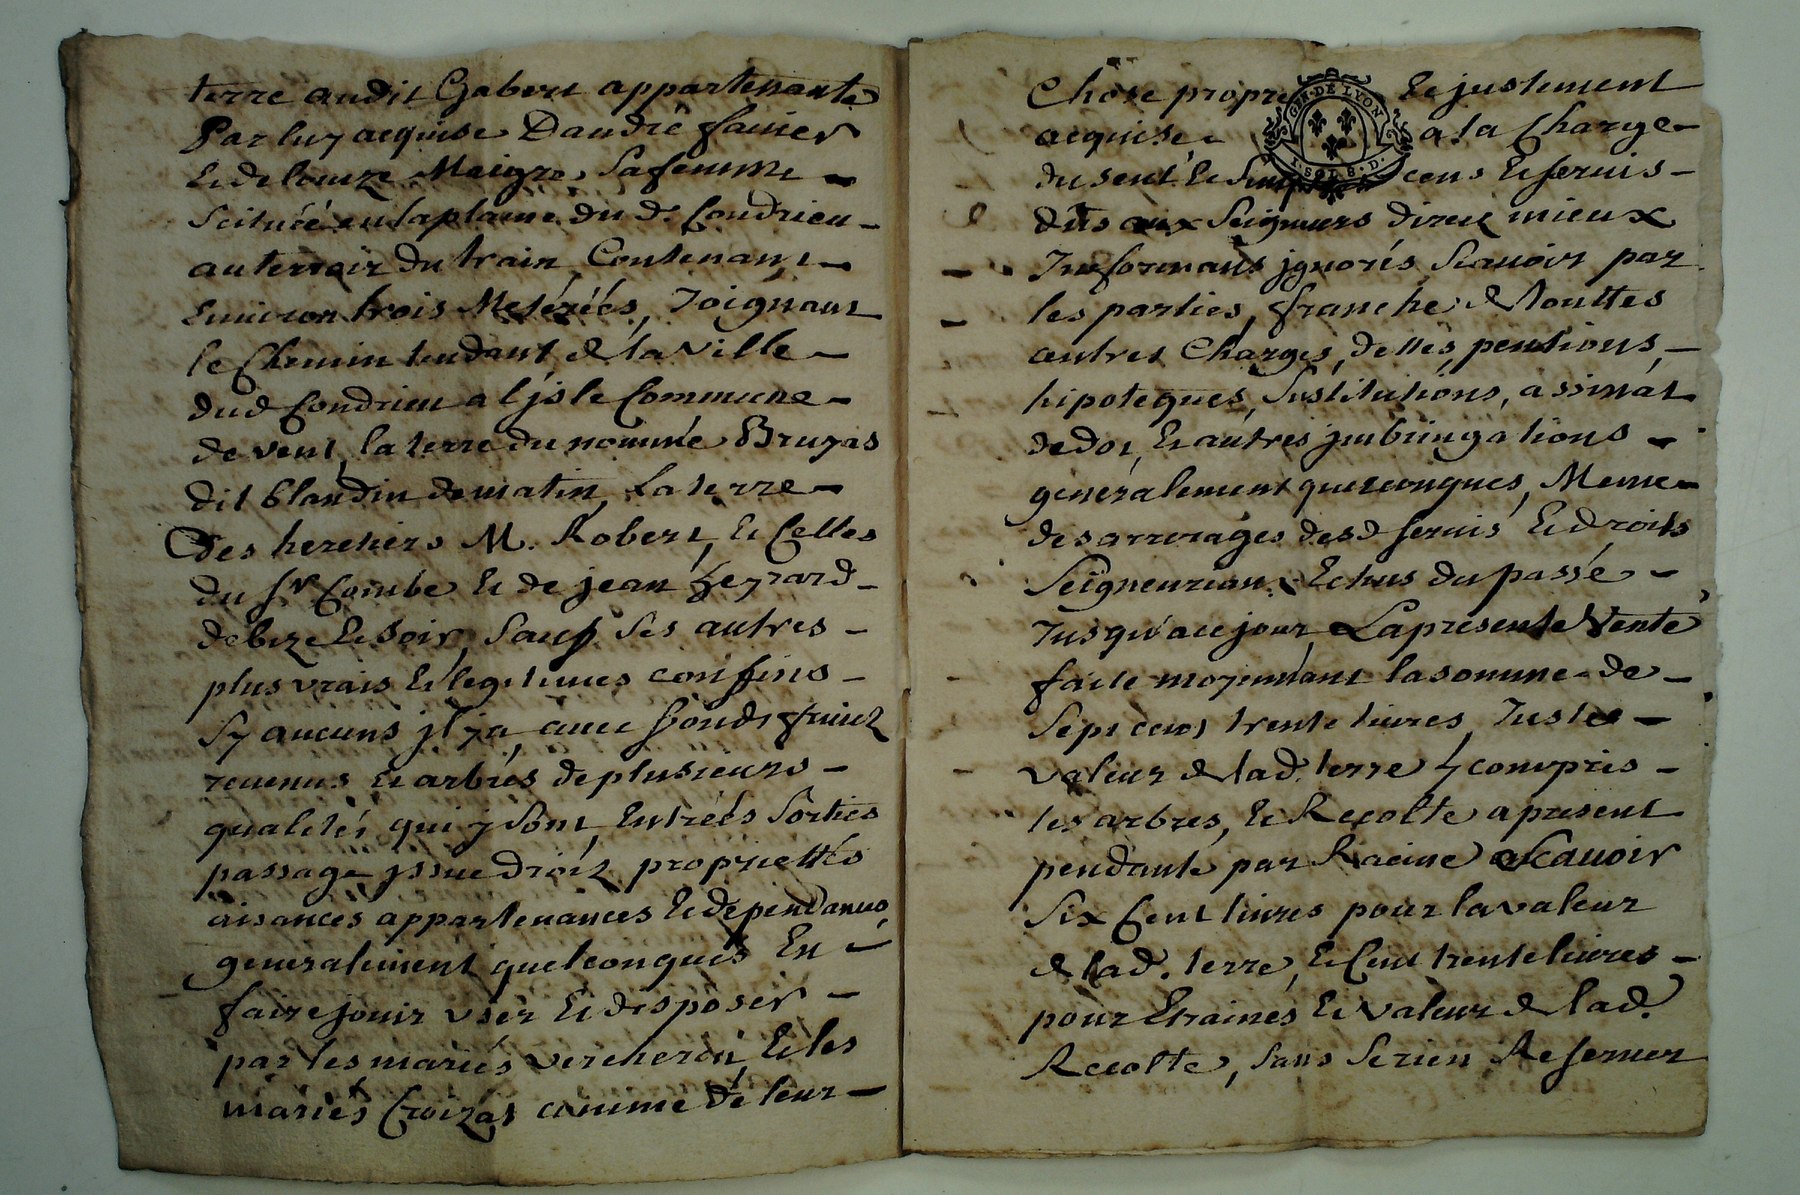 terre audit Gabert appartenante
Par luy acquise Dandré fanier
Et de louize Maigre, Sa femme
Scituée en la plaine du d. Condrieu
au terroir du train, Contenant
Environ trois Meterées, Joignant
le Chemin tendant de la Ville
dud Condrieu a L'jsle Commune
de vent, la terre du nommé Bruyas
dit blandin de matin, La terre
Des heretiers M. Robert, Et Celles
du Sr. Combe Et de jean
de bize Et Soir, Sauf Ses autres
plus vrais Et legitimes confins
Sy aucuns jl y a, avec fonds fruict
revenus Et arbres de plusieurs
qualités qui y Sont, Entrées Sorties
passage jssue droict proprietés
aisances appartenances Et dependances
generalement quelconques En
faire jouir user Et disposer
par les mariés vercheron, Et les
mariés Croizat comme de leur
Chose propre Et justement
acquise a la Charge
GEN. DE LYON
1. SOL 8. D.
du seul Et cens Et servis
dûs aux Seigneurs direct mieux
Informans jgnorés Scavoir par
les parties, franche de Touttes
autres Charges, dettes, pentions,
hipoteques, Sustitutions, assinat
de dot, Et autres
generalement quelconques, Meme
des arrerages desd servis Et droits
Seigneuriaux Echus du passé
Jusqu'a ce jour, La presente Vente
faite moyennant la somme de
Sept cens trente livres, Juste
valeur de lad. terre y compris
les arbres, Et Recolte a present
pendante par Racine a Scavoir
Six Cent livres pour la valeur
de lad. terre, Et Cent trente livres
pour Etraines Et valeur de lad.
Recolte, Sans Se rien Reserver